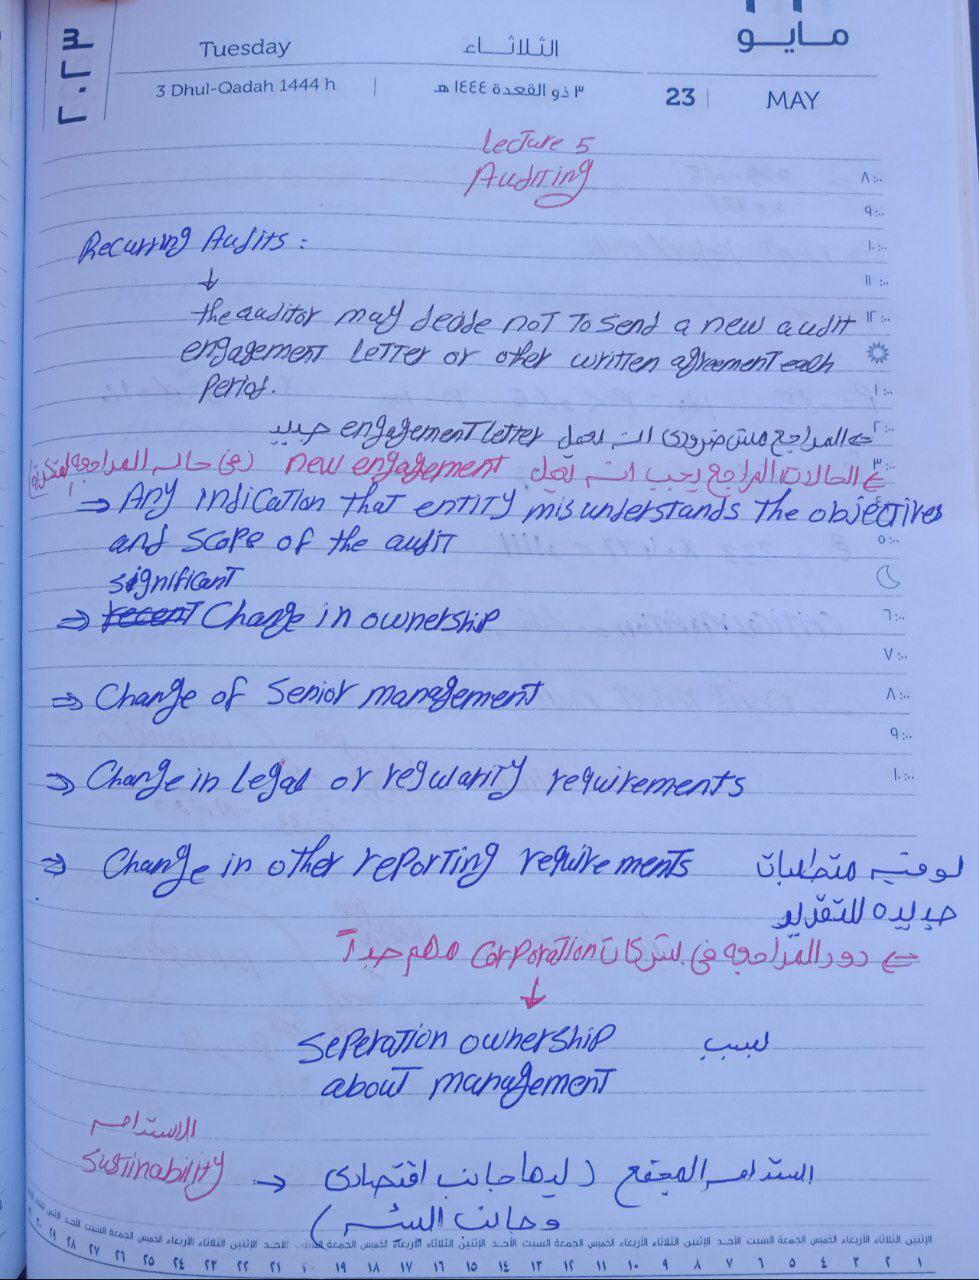 ٢٠٢٣
مايو
Tuesday
الثلاثاء
3 Dhul-Qadah 1444 h
٣ ذو القعدة ١٤٤٤ هـ
23
MAY
Lecture 5
Auditing
٨:٠٠
٩:٠٠
Recurring Audits :
١٠:٠٠
١١:٠٠
the auditor may decide not to send a new audit
١٢:٠٠
engagement letter or other written agreement each
period.
١:٠٠
⇐ المراجع مش ضروري انه يعمل engagement letter جديد
٢:٠٠
⇐ الحالات المراجع يجب انه يعمل new engagement (في حاله المراجعه المتكررة)
٣:٠٠
⇒ Any indication that entity misunderstands the objectives
and scope of the audit
٥:٠٠
significant
⇒ recent Change in ownership
٦:٠٠
٧:٠٠
⇒ Change of senior management
٨:٠٠
٩:٠٠
⇒ Change in legal or regularity requirements
١٠:٠٠
⇒ Change in other reporting requirements لو فيه متطلبات
جديده للتقرير
⇐ دور المراجعه في شركات Corporation مهم جداً
↓
Seperation ownership لسبب
about management
الاستدامه
Sustinability → استدامه المجتمع (ليها جانب اقتصادى
وجانب البيئه)
الإثنين الثلاثاء الأربعاء الخميس الجمعة السبت الأحد الإثنين الثلاثاء الأربعاء الخميس الجمعة السبت الأحد الإثنين الثلاثاء الأربعاء الخميس الجمعة السبت الأحد الإثنين الثلاثاء الأربعاء الخميس الجمعة السبت الأحد الإثنين الثلاثاء
١ ٢ ٣ ٤ ٥ ٦ ٧ ٨ ٩ ١٠ ١١ ١٢ ١٣ ١٤ ١٥ ١٦ ١٧ ١٨ ١٩ ٢٠ ٢١ ٢٢ ٢٣ ٢٤ ٢٥ ٢٦ ٢٧ ٢٨ ٢٩ ٣٠